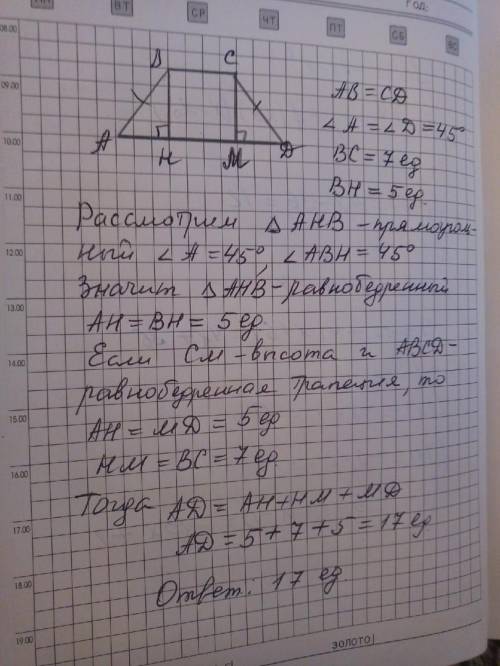 ВТ
СР
ЧТ
ПТ
СБ
ВС
ГОД:
08.00
09.00
10.00
11.00
12.00
13.00
14.00
15.00
16.00
17.00
18.00
19.00
B C
A H M D
AB = CD
∠A = ∠D = 45°
BC = 7 ед
BH = 5 ед.
Рассмотрим △ AHB - прямоуголь-
ный ∠A = 45°, ∠ABH = 45°
Значит △AHB - равнобедренный
AH = BH = 5 ед
Если CM - высота и ABCD -
равнобедренная трапеция, то
AH = MD = 5 ед
HM = BC = 7 ед
Тогда AD = AH + HM + MD
AD = 5 + 7 + 5 = 17 ед
Ответ: 17 ед
ЗОЛОТО